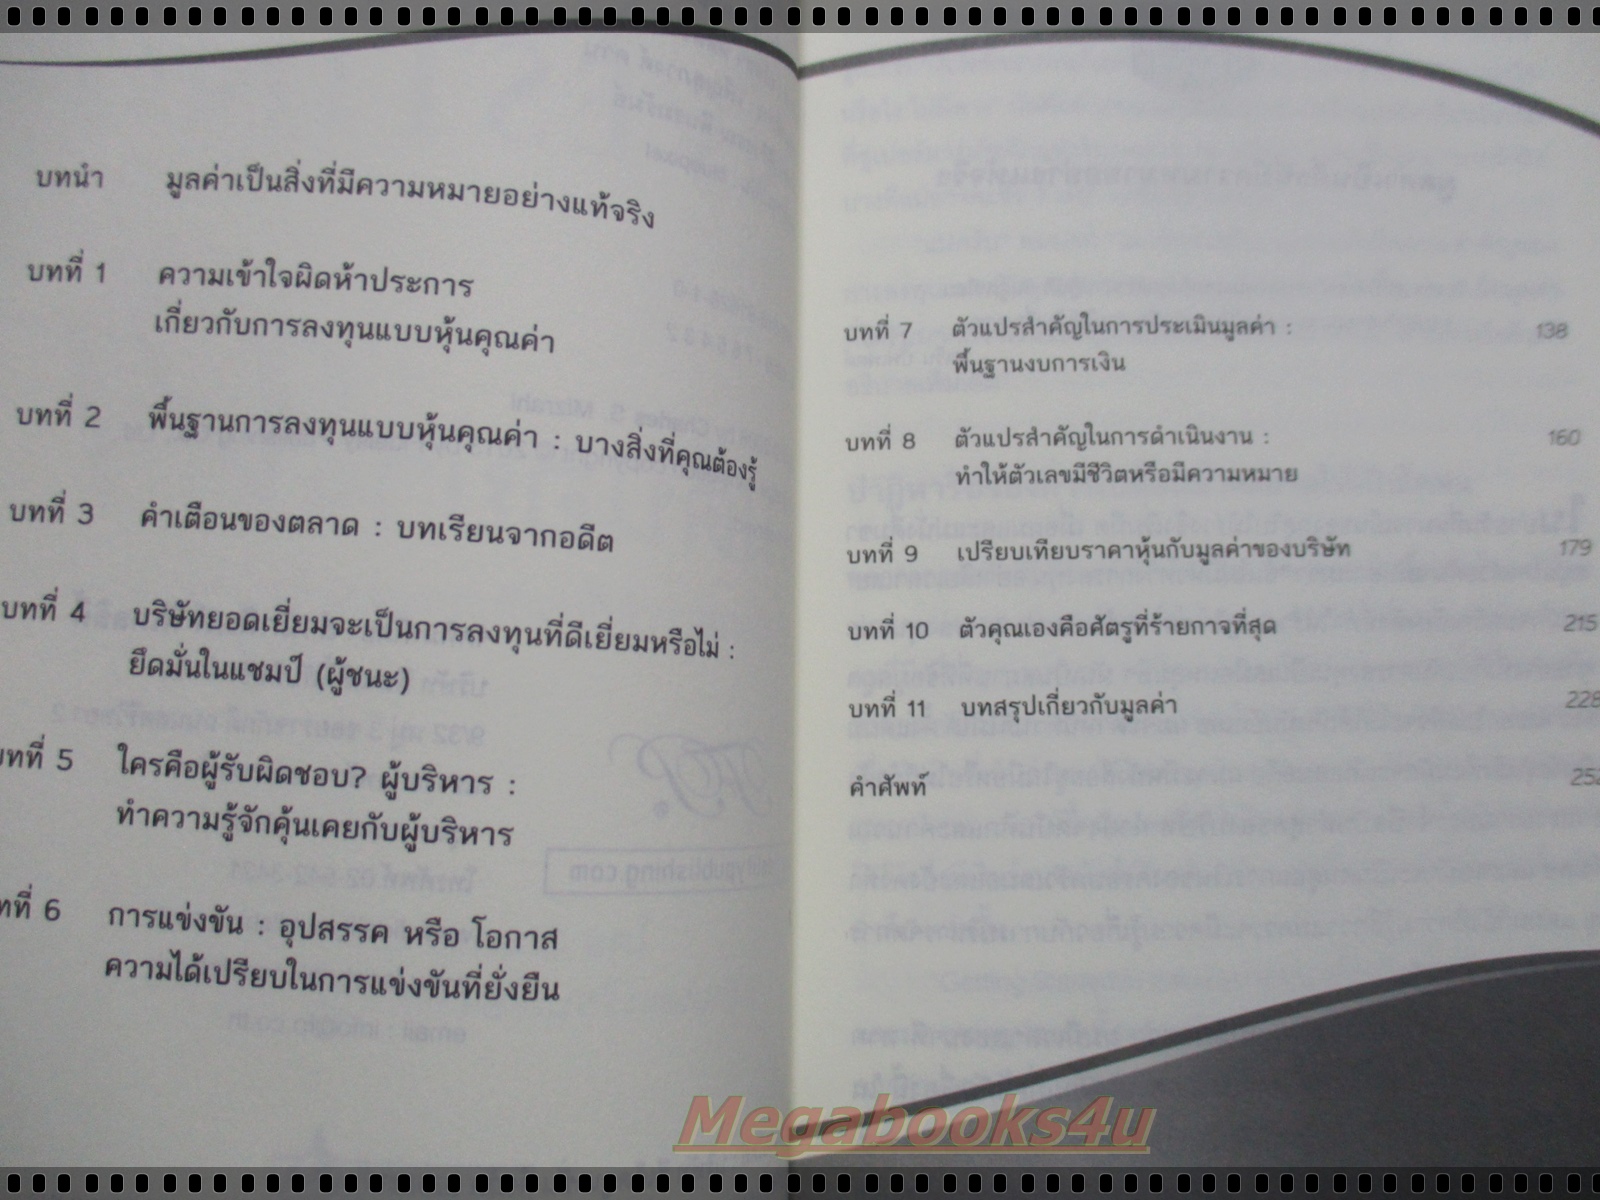 บทนำ มูลค่าเป็นสิ่งที่มีความหมายอย่างแท้จริง
บทที่ 1 ความเข้าใจผิดห้าประการ
เกี่ยวกับการลงทุนแบบหุ้นคุณค่า
บทที่ 2 พื้นฐานการลงทุนแบบหุ้นคุณค่า : บางสิ่งที่คุณต้องรู้
บทที่ 3 คำเตือนของตลาด : บทเรียนจากอดีต
บทที่ 4 บริษัทยอดเยี่ยมจะเป็นการลงทุนที่ดีเยี่ยมหรือไม่ :
ยึดมั่นในแชมป์ (ผู้ชนะ)
บทที่ 5 ใครคือผู้รับผิดชอบ? ผู้บริหาร :
ทำความรู้จักคุ้นเคยกับผู้บริหาร
ทที่ 6 การแข่งขัน : อุปสรรค หรือ โอกาส
ความได้เปรียบในการแข่งขันที่ยั่งยืน
บทที่ 7 ตัวแปรสำคัญในการประเมินมูลค่า : 138
พื้นฐานงบการเงิน
บทที่ 8 ตัวแปรสำคัญในการดำเนินงาน : 160
ทำให้ตัวเลขมีชีวิตหรือมีความหมาย
บทที่ 9 เปรียบเทียบราคาหุ้นกับมูลค่าของบริษัท 179
บทที่ 10 ตัวคุณเองคือศัตรูที่ร้ายกาจที่สุด 215
บทที่ 11 บทสรุปเกี่ยวกับมูลค่า 228
คำศัพท์ 252
Megabooks4u